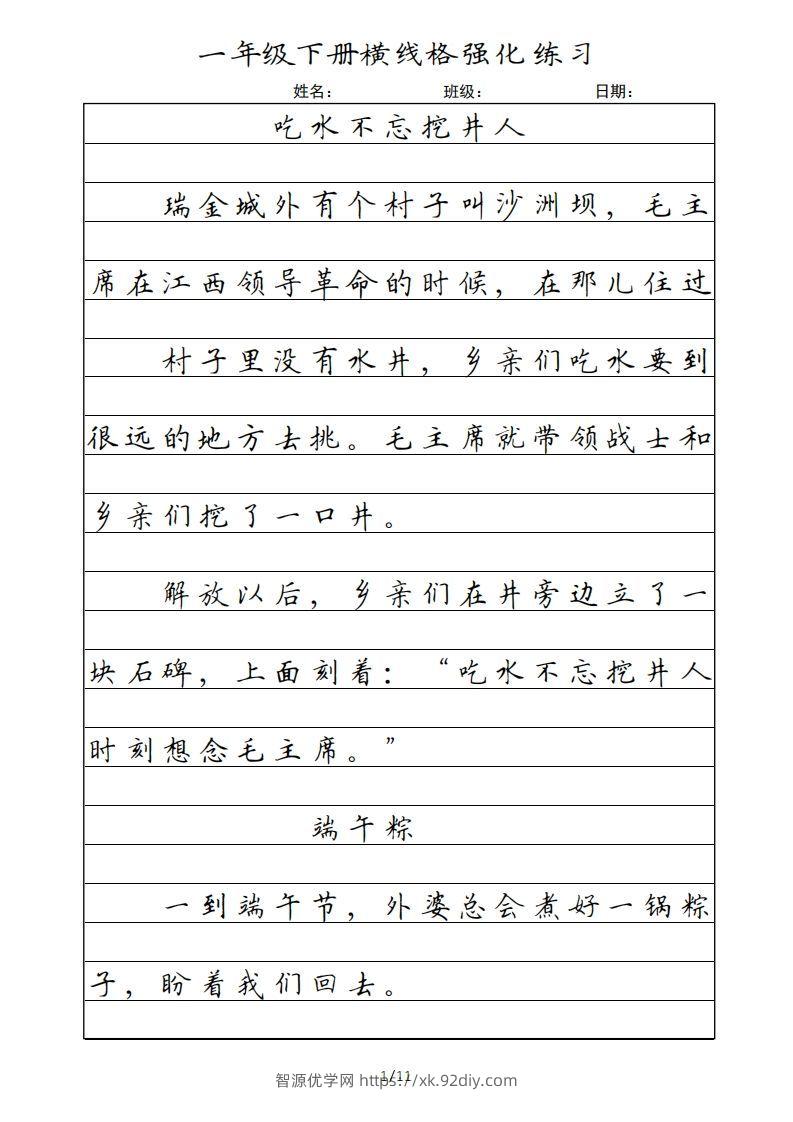 一年级下册横线格强化练习
姓名： 班级： 日期：
吃水不忘挖井人
瑞金城外有个村子叫沙洲坝，毛主
席在江西领导革命的时候，在那儿住过
村子里没有水井，乡亲们吃水要到
很远的地方去挑。毛主席就带领战士和
乡亲们挖了一口井。
解放以后，乡亲们在井旁边立了一
块石碑，上面刻着：“吃水不忘挖井人
时刻想念毛主席。”
端午粽
一到端午节，外婆总会煮好一锅粽
子，盼着我们回去。
1/11
智源优学网 https://xk.92diy.com